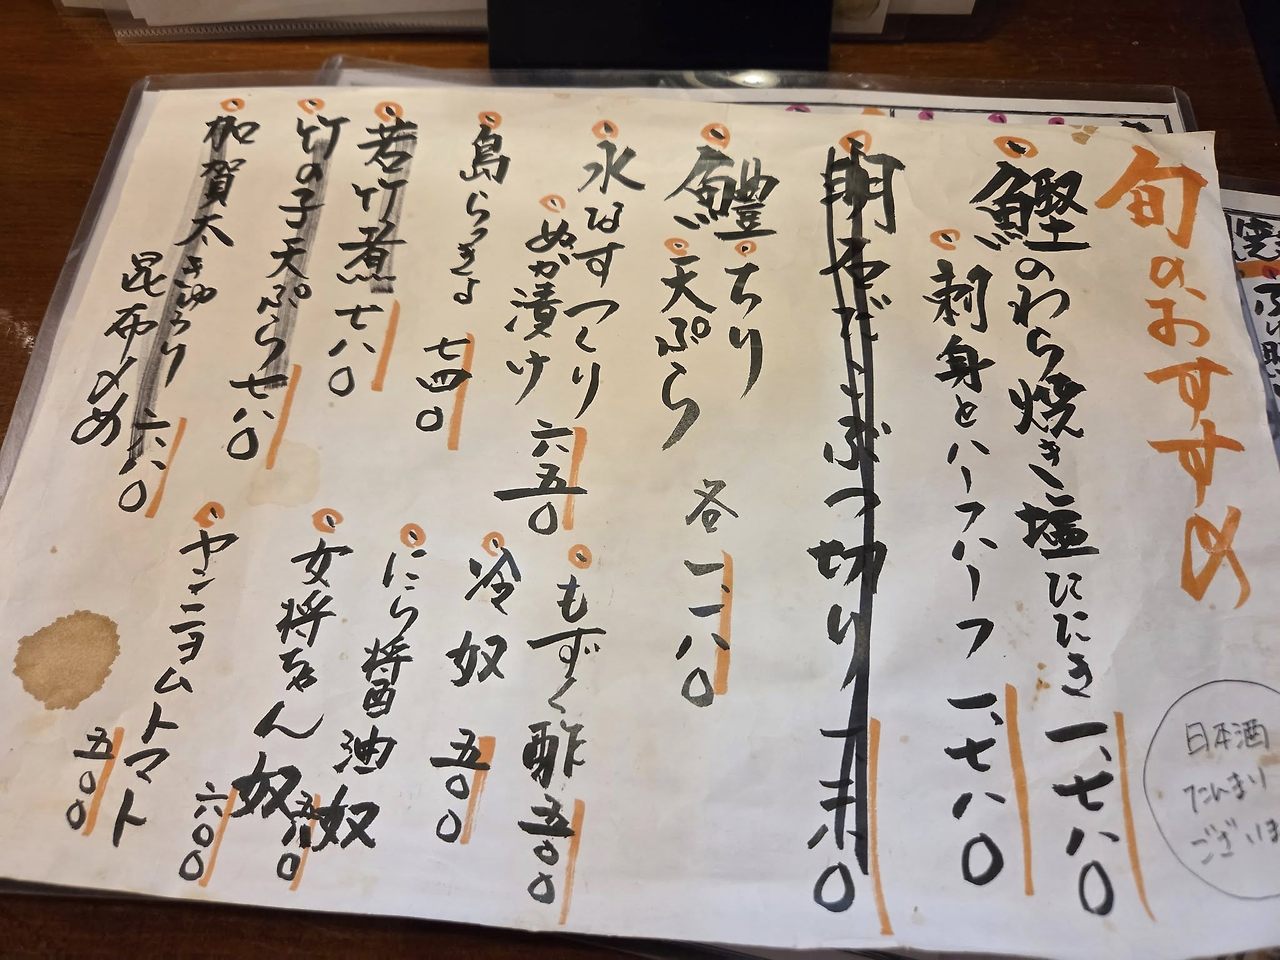 旬のおすすめ
鰹のわら焼き塩たたき 一、七八〇
刺身とハーフハーフ 一、七八〇
明石だこぶつ切り
鱧ちり
天ぷら
各一、一八〇
水なすつくり
ぬか漬け 六五〇
島らっきょ 七四〇
若竹煮 七八〇
竹の子天ぷら 七八〇
加賀太きゅうり 六八〇
昆布〆め
もずく酢 五〇〇
冷奴 五〇〇
にら醤油奴 五八〇
女将ちゃん奴 六〇〇
ヤンニョムトマト 五〇〇
日本酒
たんまり
ございま